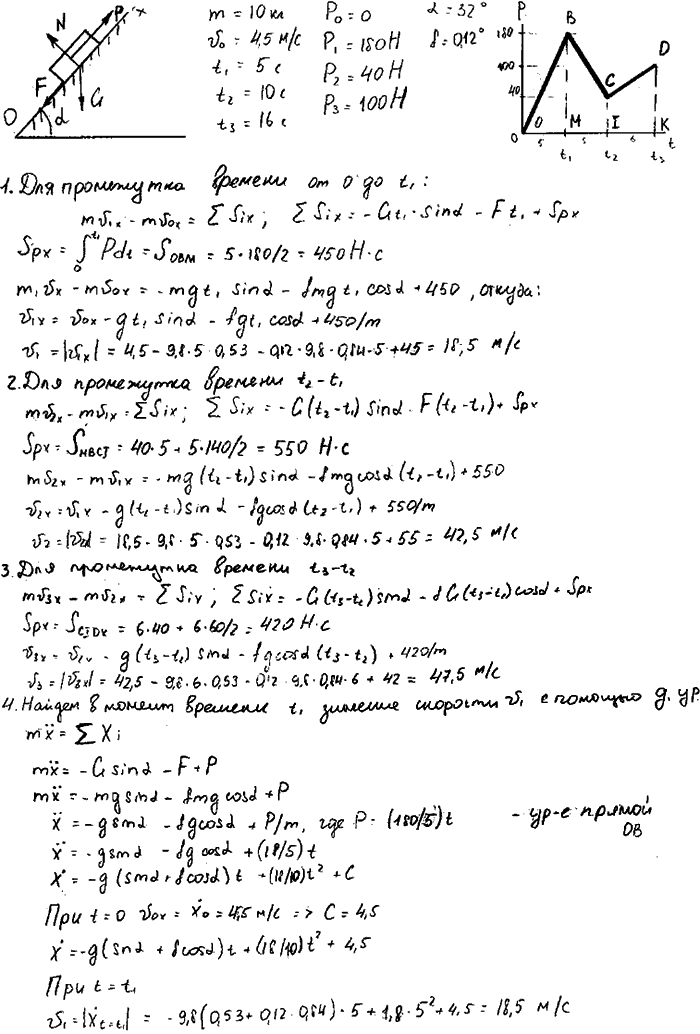 m = 10 кг P₀ = 0 α = 32°
v₀ = 4,5 м/с P₁ = 180H f = 0,12°
t₁ = 5 с P₂ = 40 H
t₂ = 10 с P₃ = 100 H
t₃ = 16 с
N P x
F G
O α
P
180 B
100 D
40 C
O O M I K
5 5 6 t
t₁ t₂ t₃
1. Для промежутка времени от 0 до t₁:
mv₁ₓ - mv₀ₓ = ∑ Six; ∑ Six = - Gt₁·sinα - Ft₁ + Spx
Spx = ∫₀^t₁ Pdt = S_OBM = 5·180/2 = 450 H·c
m₁vₓ - mv₀ₓ = -mgt₁ sinα - fmgt₁ cosα + 450, откуда:
v₁ₓ = v₀ₓ - gt₁ sinα - fgt₁ cosα + 450/m
v₁ = |v₁ₓ| = 4,5 - 9,8·5·0,53 - 0,12·9,8·0,84·5 + 45 = 18,5 м/с
2. Для промежутка времени t₂ - t₁
mv₂ₓ - mv₁ₓ = ∑ Six; ∑ Six = - G(t₂-t₁) sinα - F(t₂-t₁) + Spx
Spx = S_MBCI = 40·5 + 5·140/2 = 550 H·c
mv₂ₓ - mv₁ₓ = -mg(t₂-t₁) sinα - fmg cosα (t₂-t₁) + 550
v₂ₓ = v₁ₓ - g(t₂-t₁) sin α - fg cosα (t₂-t₁) + 550/m
v₂ = |v₂ₓ| = 18,5 - 9,8·5·0,53 - 0,12·9,8·0,84·5 + 55 = 42,5 м/с
3. Для промежутка времени t₃-t₂
mv₃ₓ - mv₂ₓ = ∑ Six; ∑ Six = -G(t₃-t₂) sinα - fG(t₃-t₂) cosα + Spx
Spx = S_CIDK = 6·40 + 6·60/2 = 420 H·c
v₃ₓ = v₂ₓ - g(t₃-t₂) sinα - fg cosα (t₃-t₂) + 420/m
v₃ = |v₃ₓ| = 42,5 - 9,8·6·0,53 - 0,12·9,8·0,84·6 + 42 = 47,5 м/с
4. Найдем в момент времени t₁ значение скорости v₁ с помощью д. ур.
mẍ = ∑ Xi
mẍ = - G sinα - F + P
mẍ = - mg sinα - fmg cosα + P
ẍ = -g sinα - fg cosα + P/m, где P = (180/5)t - ур-е прямой OB
ẍ = -g sinα - fg cosα + (18/5) t
ẋ = -g (sinα + f cosα) t + (18/10)t² + C
При t = 0 v₀ₓ = ẋ₀ = 4,5 м/с => C = 4,5
ẋ = -g(sinα + f cosα)t + (18/10)t² + 4,5
При t = t₁
v₁ = |ẋ t=t₁| = -9,8(0,53 + 0,12·0,84)·5 + 1,8·5² + 4,5 = 18,5 м/с